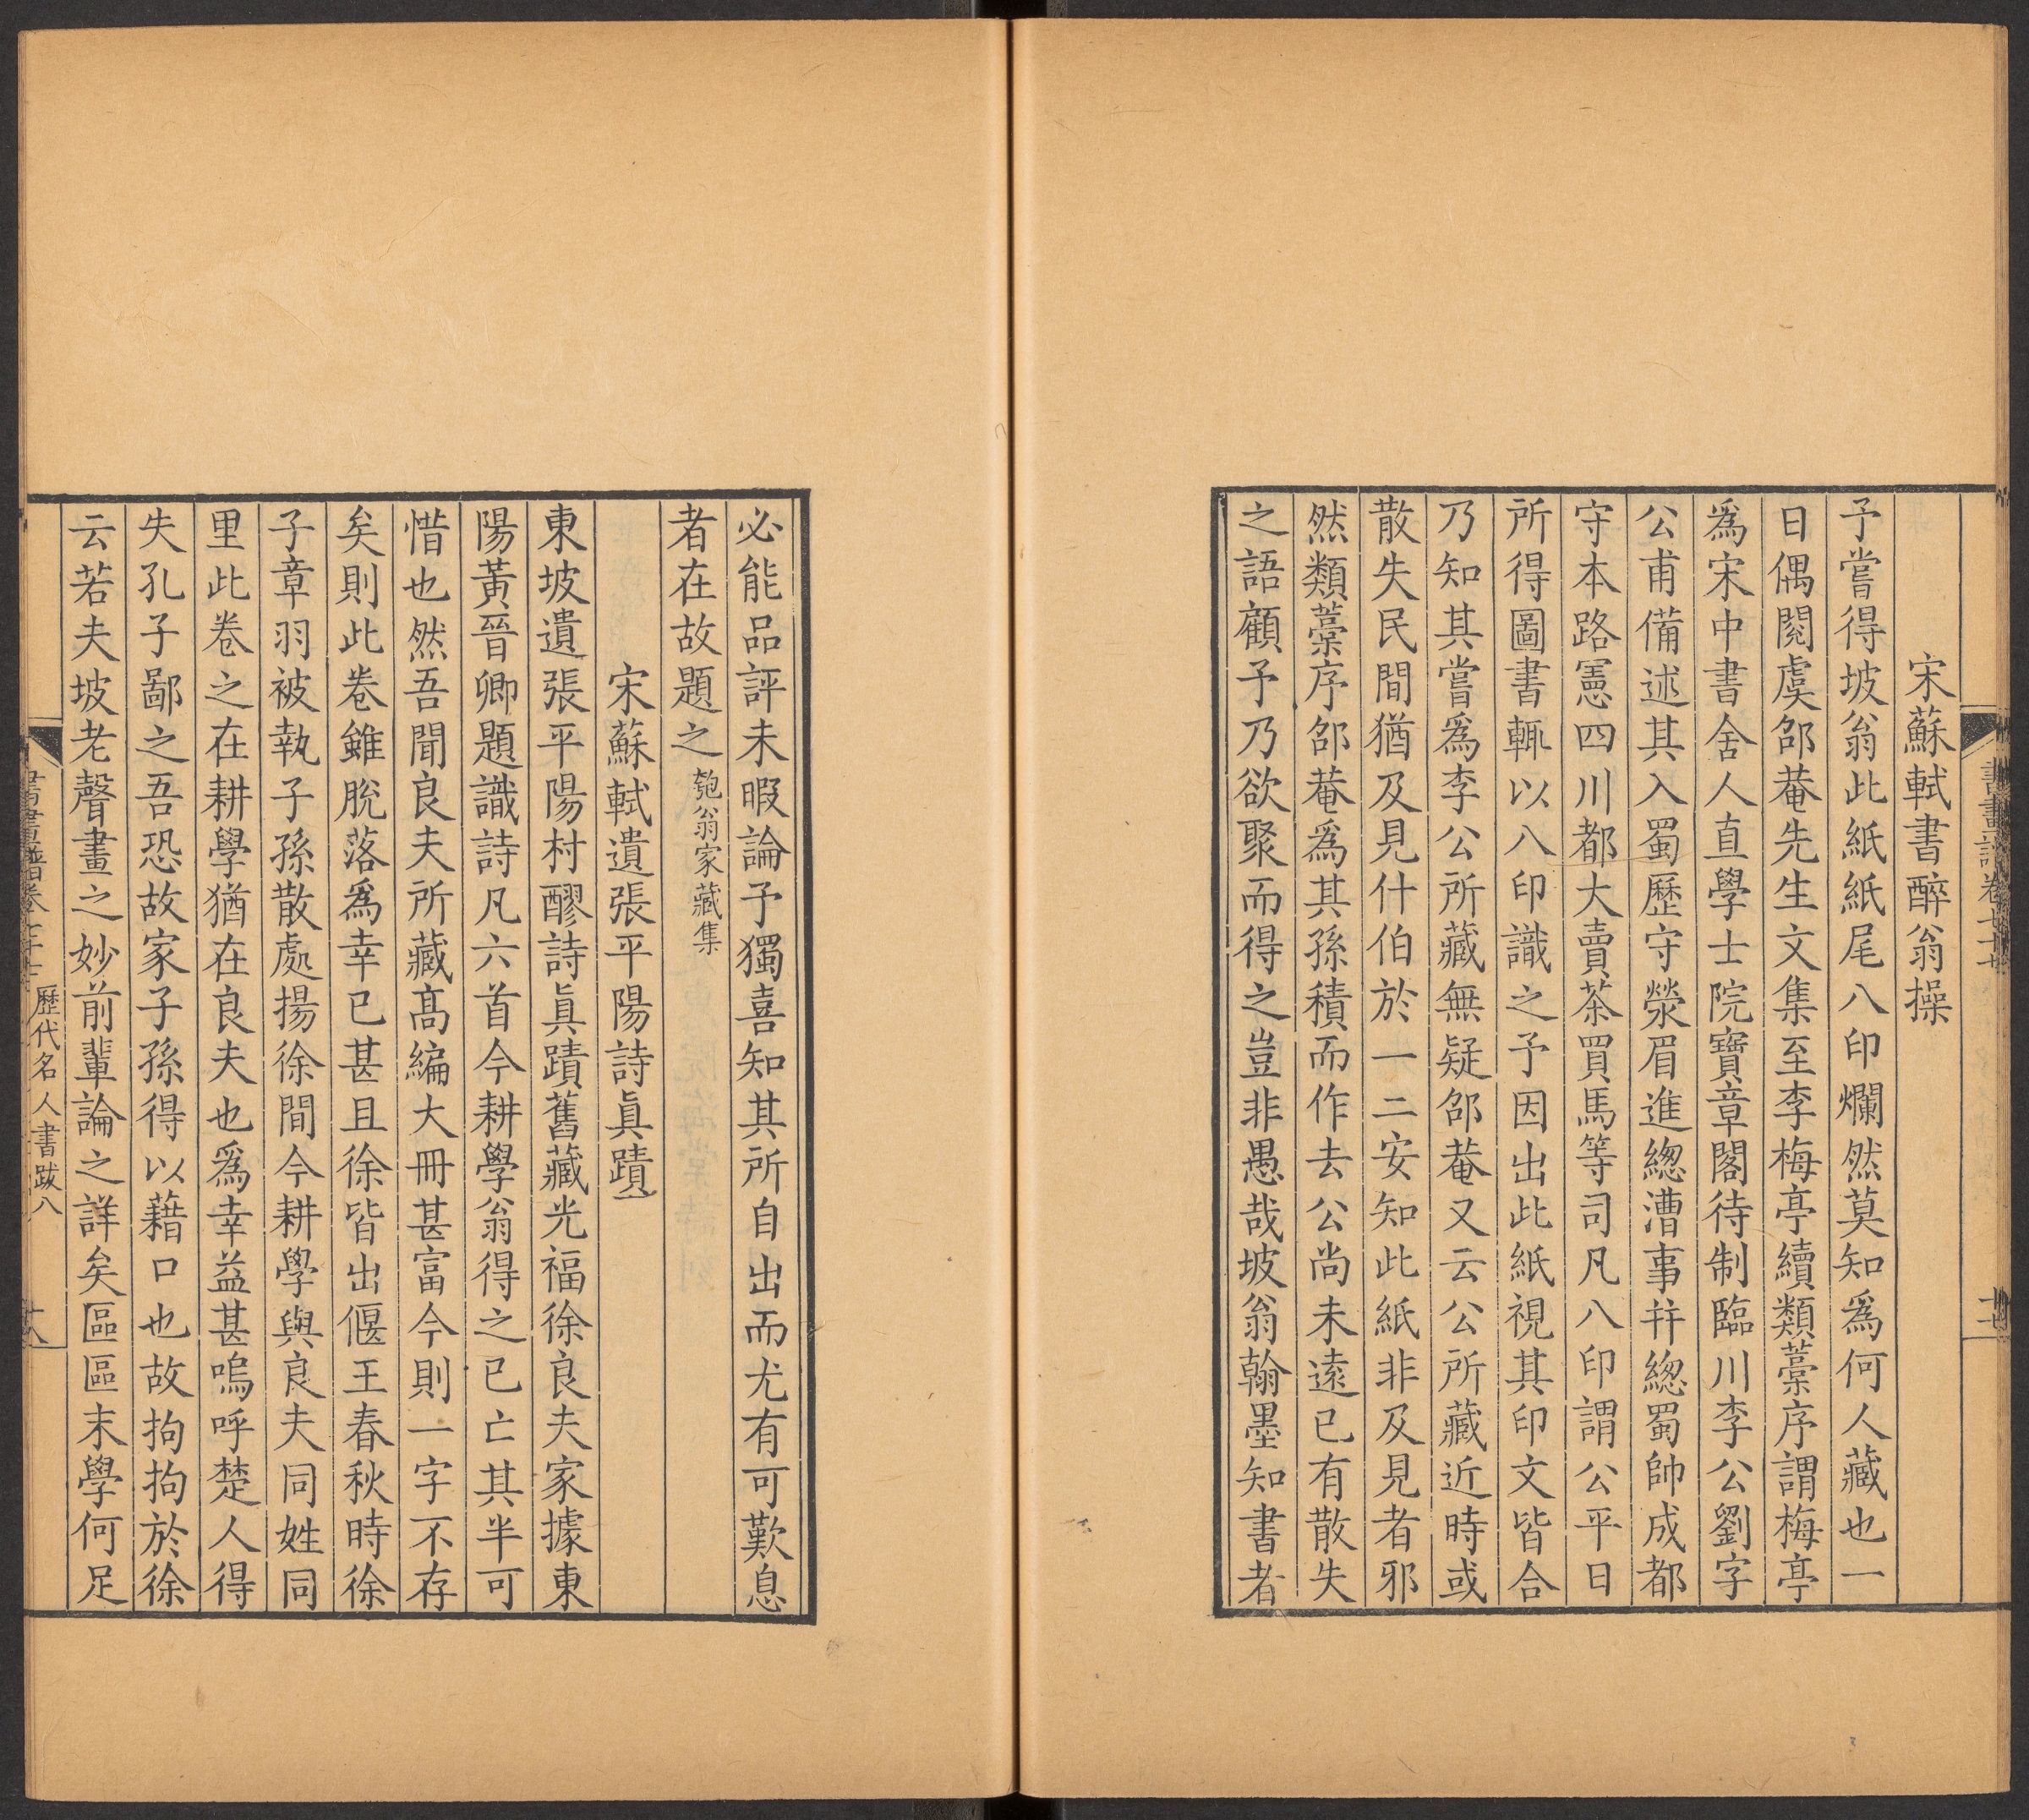 宋蘇軾書醉翁操
予嘗得坡翁此紙紙尾八印爛然莫知爲何人藏也一
日偶閱虞邵菴先生文集至李梅亭續類藁序謂梅亭
爲宋中書舍人直學士院寶章閣待制臨川李公劉字
公甫備述其入蜀歷守滎眉進緫漕事幷緫蜀帥成都
守本路憲四川都大賣茶買馬等司凡八印謂公平日
所得圖書輒以八印識之予因出此紙視其印文皆合
乃知其嘗爲李公所藏無疑邵菴又云公所藏近時或
散失民間猶及見什伯於一二安知此紙非及見者邪
然類藁序邵菴爲其孫積而作去公尚未遠已有散失
之語顧予乃欲聚而得之豈非愚哉坡翁翰墨知書者
必能品評未暇論予獨喜知其所自出而尤有可歎息
者在故題之 匏翁家藏集
宋蘇軾遺張平陽詩眞蹟
東坡遺張平陽村醪詩眞蹟舊藏光福徐良夫家據東
陽黃晉卿題識詩凡六首今耕學翁得之已亡其半可
惜也然吾聞良夫所藏髙編大冊甚富今則一字不存
矣則此卷雖脫落爲幸已甚且徐皆出偃王春秋時徐
子章羽被執子孫散處揚徐間今耕學與良夫同姓同
里此卷之在耕學猶在良夫也爲幸益甚嗚呼楚人得
失孔子鄙之吾恐故家子孫得以藉口也故拘拘於徐
云若夫坡老聲畫之妙前輩論之詳矣區區末學何足
歷代名人書跋八